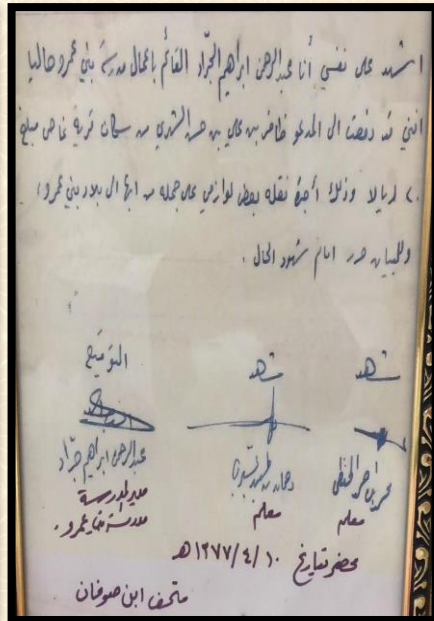 اشهد على نفسي أنا عبدالرحمن ابراهيم الجرّاد القائم بأعمال مدرسة بني عمرو حاليا
انني قد دفعت الى المدعو ظافر بن علي بن الشهري من سكان قرية خاص مبلغ
٢٠ ريالا وذلك أجرة نقله بعض لوازمي على جمله من ابها الى بلاد بني عمرو
وللبيان حرر امام شهود الحال .
شهد شهد التوقيع
عبدالرحمن ابراهيم جرّاد
معلم معلم مدير المدرسة
مدرسة عمرو .
محضر بتاريخ ١٠/٤/١٣٧٧ هـ
متحف ابن صوفان